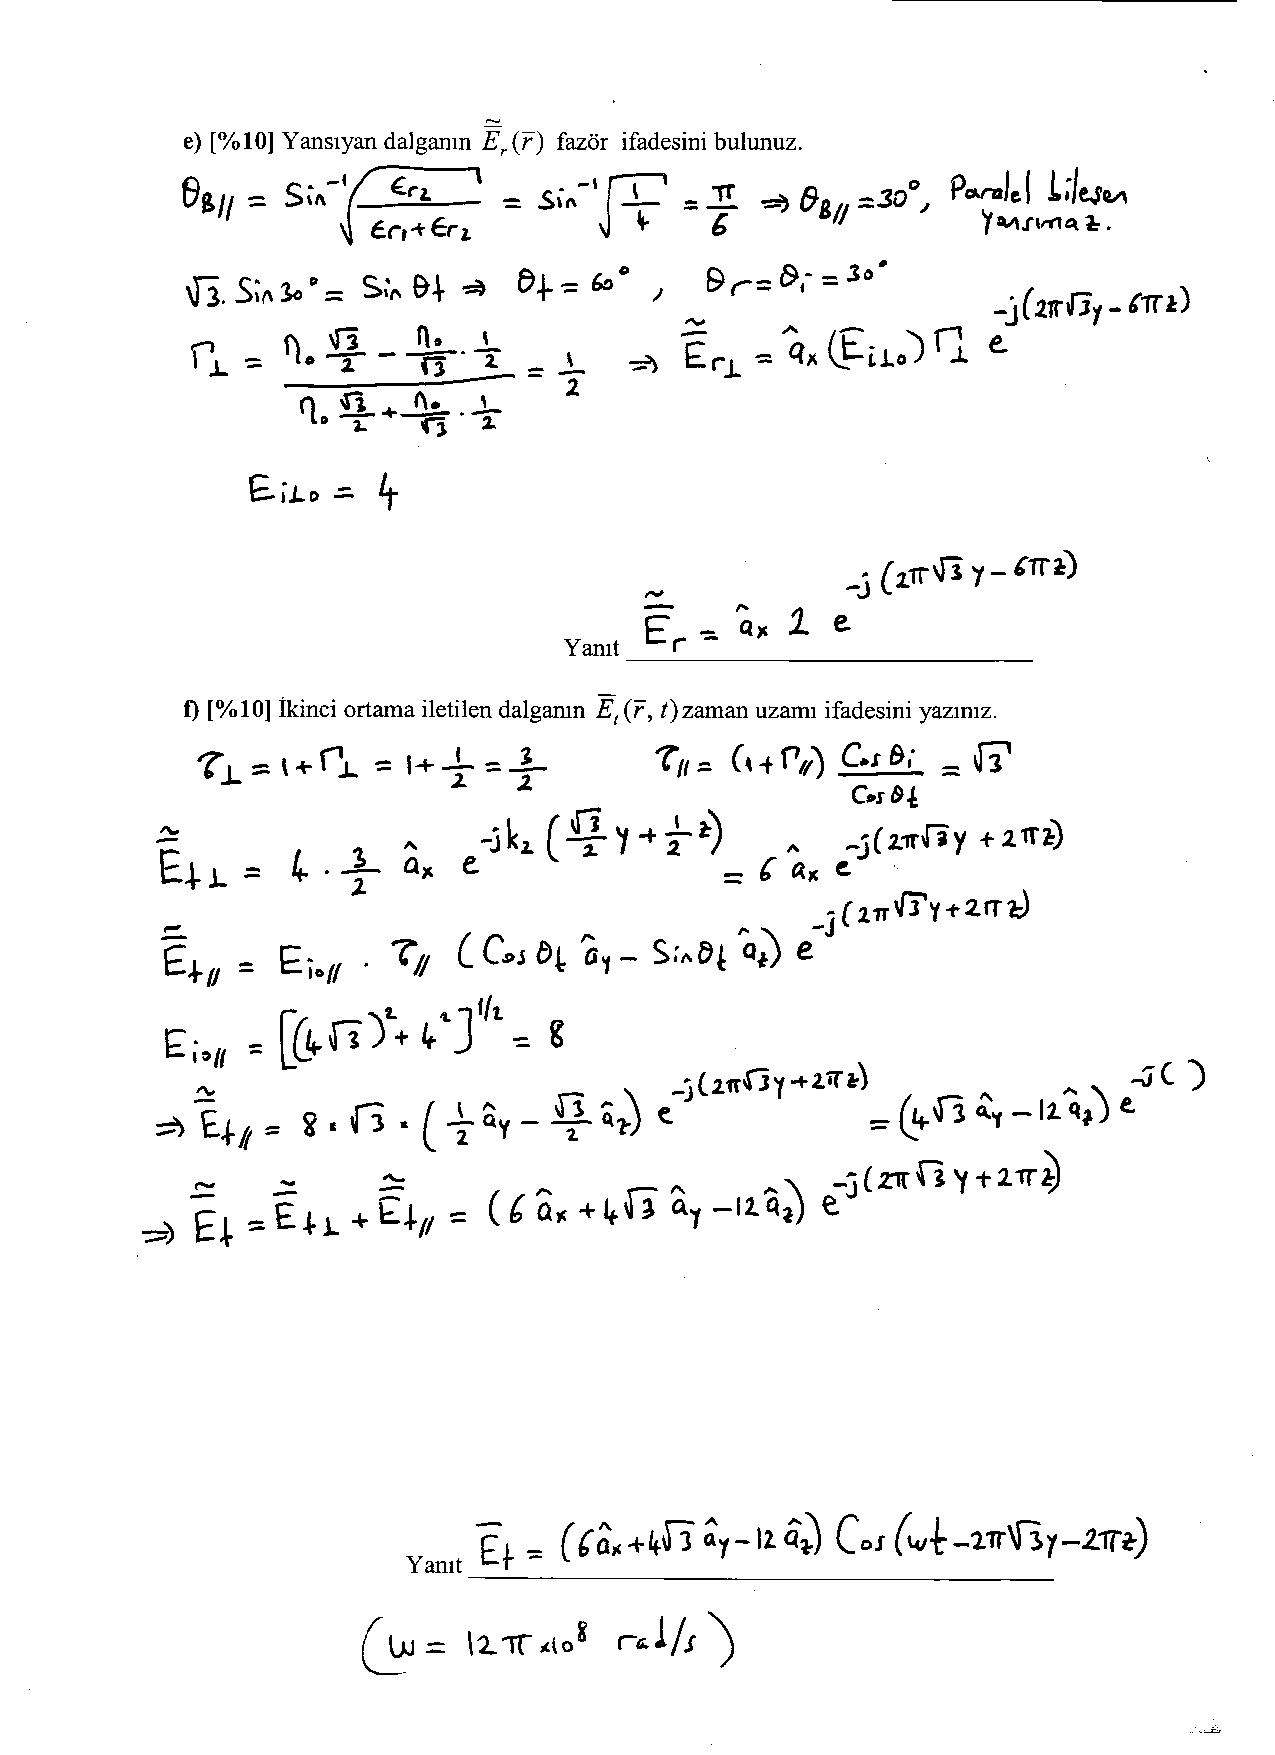 e) [%10] Yansıyan dalganın Ẽ̅_r(r̅) fazör ifadesini bulunuz.
θ_B// = Sin⁻¹√(ϵr2/(ϵr1+ϵr2)) = Sin⁻¹√(1/4) = π/6 ⇒ θ_B// = 30°, Paralel bileşen yansımaz.
√3. Sin30° = Sin θt ⇒ θt = 60°, θr = θi = 30°
Γ⊥ = (η₀ √3/2 − η₀/√3 · 1/2)/(η₀ √3/2 + η₀/√3 · 1/2) = 1/2 ⇒ Ẽ̅r⊥ = âx (Ei⊥o) Γ⊥ e^{-j(2π√3y − 6πz)}
Ei⊥o = 4
Yanıt Ẽ̅r = âx 2 e^{-j(2π√3 y − 6πz)}
f) [%10] İkinci ortama iletilen dalganın E̅_t(r̅, t) zaman uzamı ifadesini yazınız.
τ⊥ = 1+Γ⊥ = 1+ 1/2 = 3/2 τ// = (1+Γ//) Cos θi/Cos θt = √3
Ẽ̅t⊥ = 4 . 3/2 âx e^{-jk2 (√3/2 y + 1/2 z)} = 6 âx e^{-j(2π√3y + 2πz)}
E̿t// = Eio// . τ// (Cos θt ây − Sin θt âz) e^{-j(2π√3y+2πz)}
Eio// = [(4√3)² + 4²]^{1/2} = 8
⇒ Ẽ̅t// = 8 . √3 . (1/2 ây − √3/2 âz) e^{-j(2π√3y+2πz)} = (4√3 ây − 12 âz) e^{-j( )}
⇒ Ẽ̅t = Ẽ̅t⊥ + Ẽ̅t// = (6 âx + 4√3 ây − 12 âz) e^{-j(2π√3y+2πz)}
Yanıt E̅t = (6âx + 4√3 ây − 12 âz) Cos (wt − 2π√3y − 2πz)
(w = 12π x10⁸ rad/s)